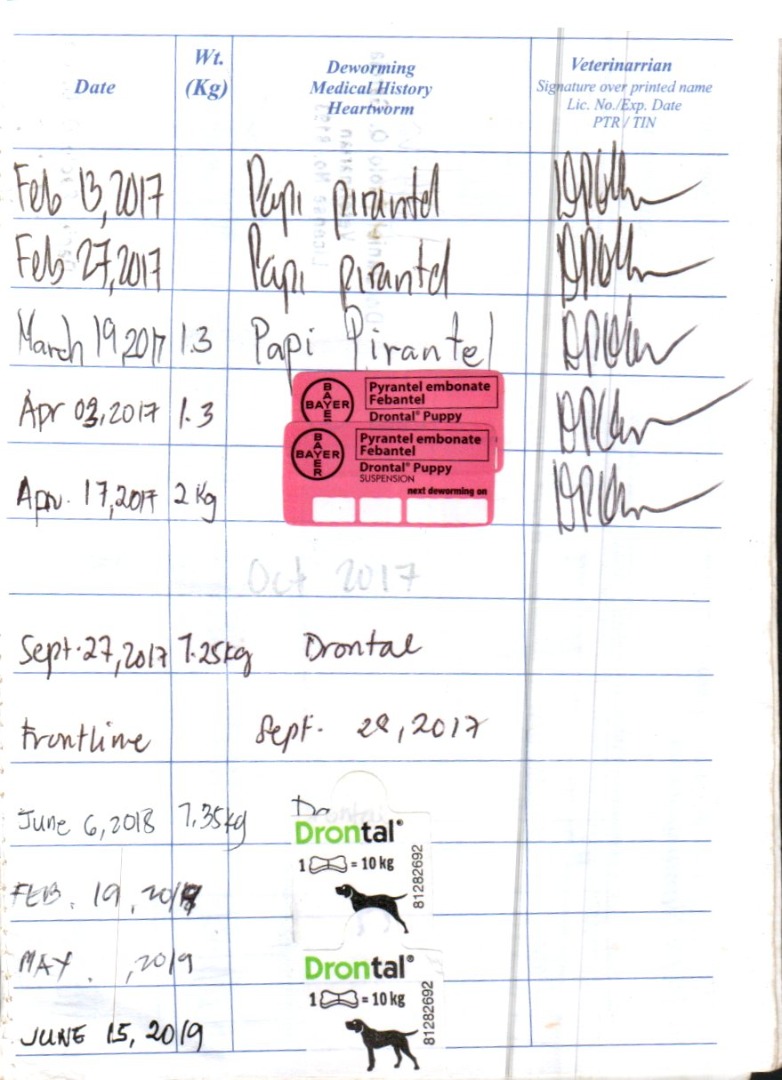 Date
Wt.
(Kg)
Deworming
Medical History
Heartworm
Veterinarrian
Signature over printed name
Lic. No./Exp. Date
PTR / TIN
Feb 13, 2017 Papi pirantel
Feb 27, 2017 Papi pirantel
March 19 2017 1.3 Papi Pirantel
Apr 03, 2017 1.3
BAYER
BAYER
Pyrantel embonate
Febantel
Drontal® Puppy
BAYER
BAYER
Pyrantel embonate
Febantel
Drontal® Puppy
SUSPENSION
next deworming on
Apr. 17, 2017 2 Kg
Oct 2017
Sept. 27, 2017 7.25kg Drontal
Frontline Sept. 28, 2017
June 6, 2018 7.35kg
Drontal®
1 = 10 kg
81282692
FEB. 19,
MAY. , 2019
Drontal®
1 = 10 kg
81282692
JUNE 15, 2019